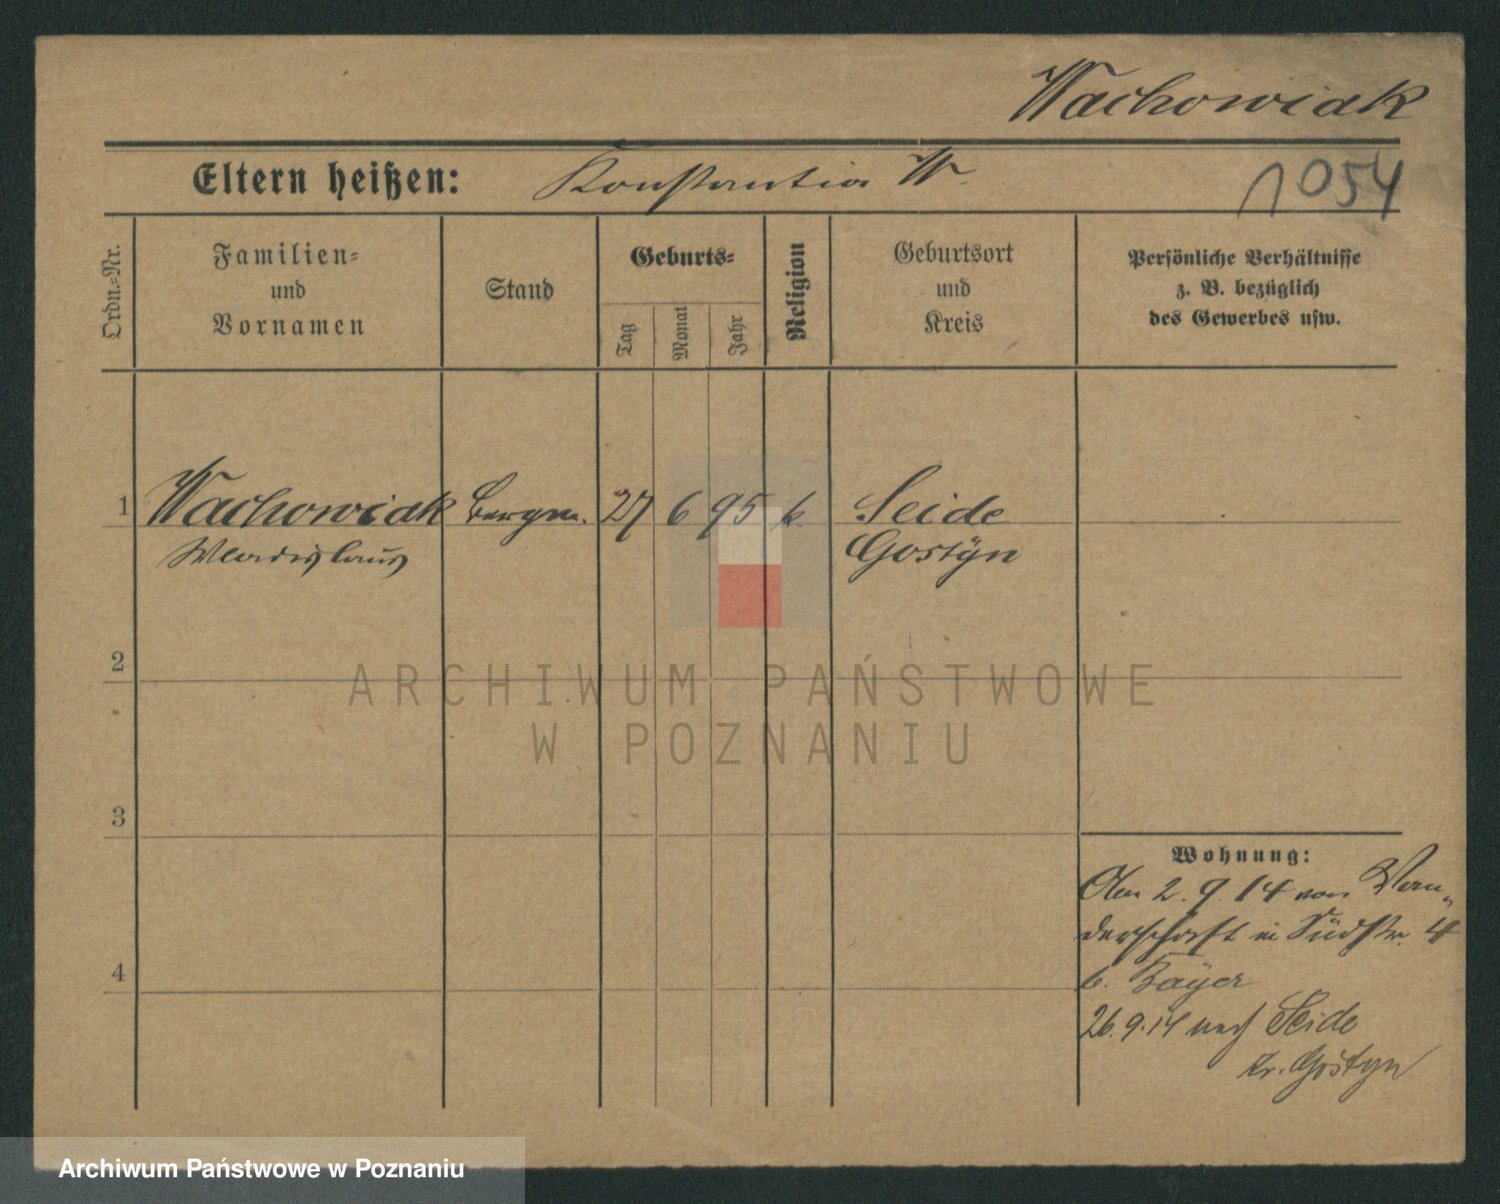 Wachowiak
Eltern heißen: Konstantia W.
1054
Ordn.-Nr.
Familien-
und
Vornamen
Stand
Geburts-
Tag
Monat
Jahr
Religion
Geburtsort
und
Kreis
Persönliche Verhältnisse
z. B. bezüglich
des Gewerbes usw.
1 Wachowiak Bergm. 27 6 95 k. Seide
Wladislaus Gostÿn
2
ARCHIWUM PAŃSTWOWE
W POZNANIU
3
Wohnung:
Am 2. 9. 14 von Wan-
derschaft in Südstr. 4
b. Bayer
4
26.9.14 nach Seide
Kr. Gostyn
Archiwum Państwowe w Poznaniu